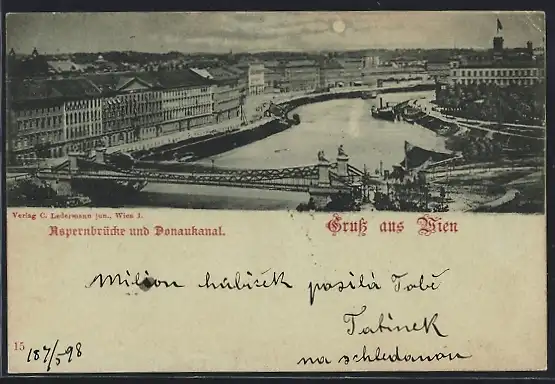 Verlag C. Ledermann jun., Wien I.
Aspernbrücke und Donaukanal.
Gruß aus Wien
Milion hubiček posilá Tobě
Tatínek
na schledanou
15
187/5 98